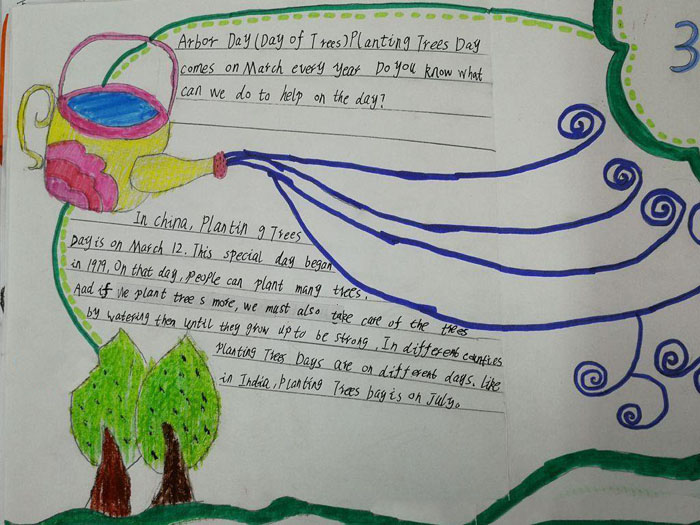 Arbor Day (Day of Trees) Planting Trees Day
comes on March every year Do you know what
can we do to help on the day?
3
In China, Plantin g Trees
Day is on March 12. This special day began
in 1979. On that day, people can plant many trees.
Aad if we plant tree s more, we must also take care of the trees
by watering then until they grow up to be strong. In different counties
Planting Trees Days are on different days. Like
in India, Planting Trees bay is on July.